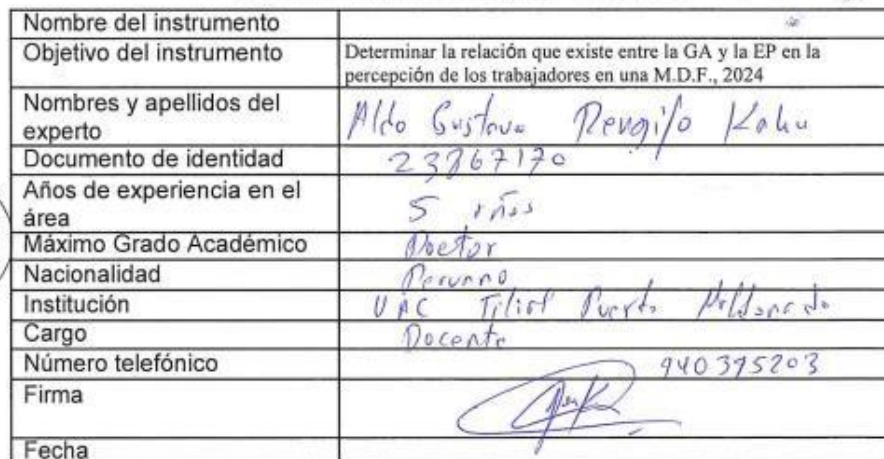 Nombre del instrumento
Objetivo del instrumento
Determinar la relación que existe entre la GA y la EP en la
percepción de los trabajadores en una M.D.F., 2024
Nombres y apellidos del
experto
Aldo Gustavo Rengifo Kahn
Documento de identidad
23867170
Años de experiencia en el
área
5 años
Máximo Grado Académico
Doctor
Nacionalidad
Peruano
Institución
UAC Filial Puerto Maldonado
Cargo
Docente
Número telefónico
940395203
Firma
Fecha